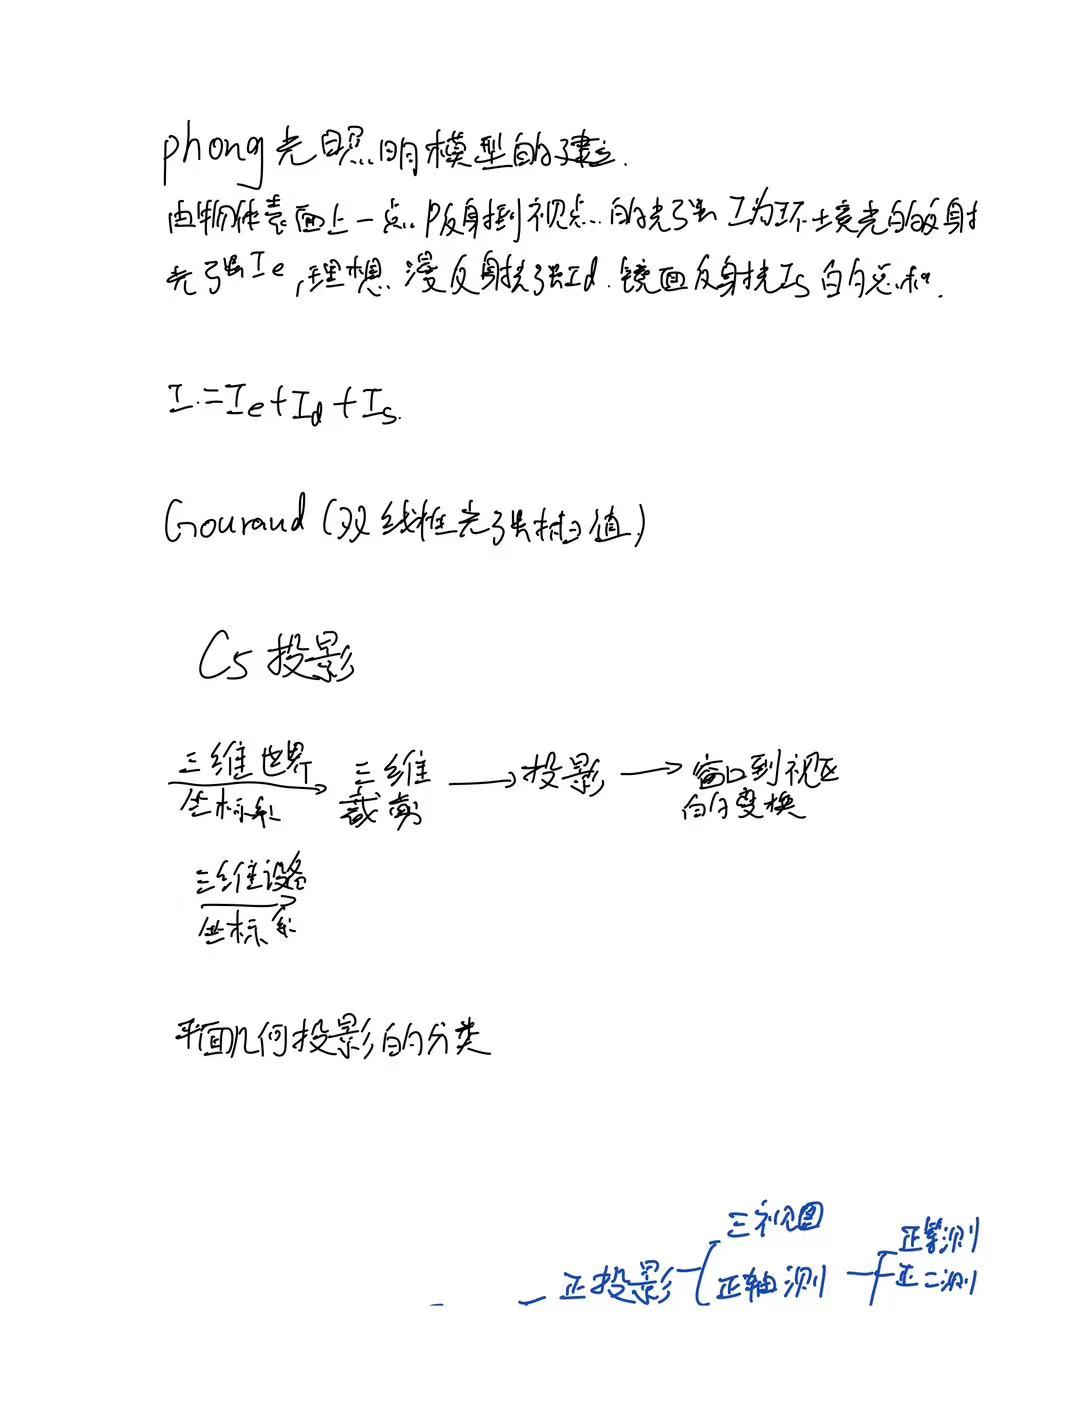 phong光照明模型的建立.
由物体表面上一点P反射到视点的光强I为环境光的反射
光强Ie,理想漫反射光强Id.镜面反射光Is的总和.
I=Ie+Id+Is.
Gouraud(双线性光强插值)
C5投影
三维世界 三维 → 投影 → 窗口到视区
坐标系 裁剪 的变换
三维设备
坐标系
平面几何投影的分类
三视图
正等测
正投影 正轴测 正二测